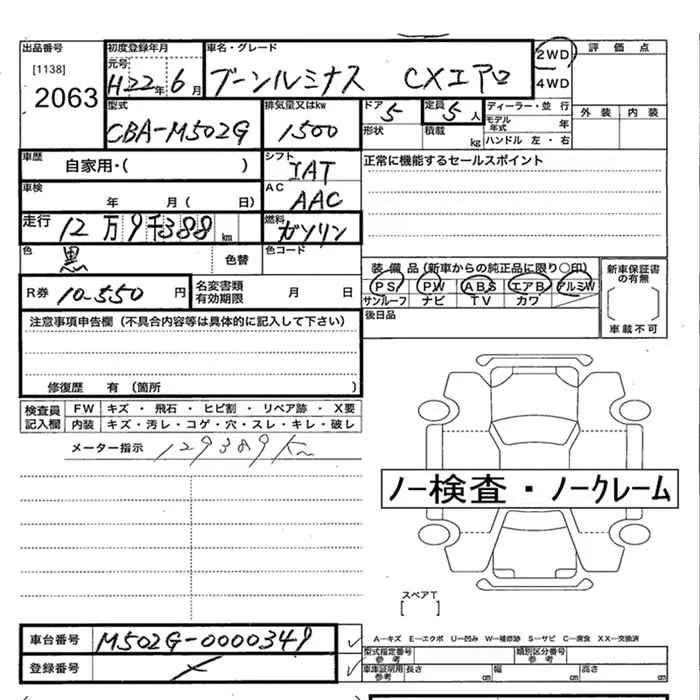 出品番号 初度登録年月 車名・グレード 2WD 評価点
[1138] 元号 4WD
2063 H22年 6月 ブーンルミナス CXエアロ
型式 排気量又はkw ドア 定員 ディーラー・並行 外装 内装
CBA-M502G 1500 5 5人 モデル年式 年
形状 積載 kg ハンドル 左・右
車歴 自家用・( ) シフト IAT 正常に機能するセールスポイント
車検 年 月( 日) AC AAC
走行 12万9千388km 燃料 ガソリン
色 黒 色替 色コード
装備品(新車からの純正品に限り○印) 新車保証書の有無
R券 10-550円 名変書類有効期限 月 日 PS PW ABS エアB アルミW
サンルーフ ナビ TV カワ
注意事項申告欄(不具合内容等は具体的に記入して下さい) 後日品 車載不可
修復歴 有(箇所 )
検査員記入欄 FW キズ・飛石・ヒビ割・リペア跡・X要
内装 キズ・汚レ・コゲ・穴・スレ・キレ・破レ
メーター指示 129389Km
ノー検査・ノークレーム
スペアT
[ ]
車台番号 M502G-0000349 A―キズ E―エクボ U―凹み W―補修跡 S―サビ C―腐食 XX―交換済
型式指定番号 参考 類別区分番号 参考
登録番号 車庫証明用 参考 長さ cm 幅 cm 高さ cm